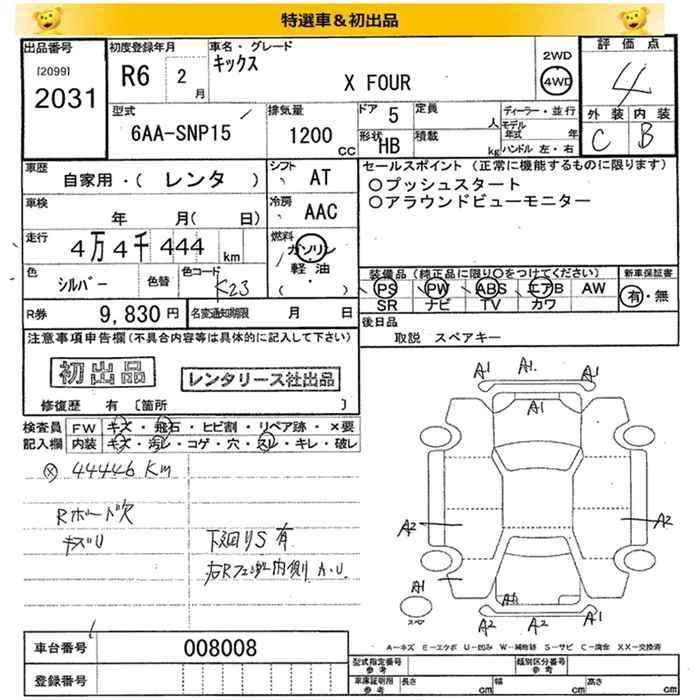 特選車＆初出品
出品番号
[2099]
2031
初度登録年月
R6 2月
車名・グレード
キックス
X FOUR
2WD
4WD
評価点
4
外装 内装
C B
型式
6AA-SNP15
排気量
1200 CC
ドア 5
形状 HB
定員 人
積載 kg
ディーラー・並行
モデル年式 年
ハンドル 左・右
車歴
自家用・( レンタ )
シフト AT
車検
年 月( 日)
冷房 AAC
走行
4万4千444 km
燃料
ガソリン
軽油
( ・ )
色
シルバー
色替
色コード
K23
R券 9,830円
名変通知期限 月 日
セールスポイント (正常に機能するものに限ります)
○プッシュスタート
○アラウンドビューモニター
装備品(純正品に限り○をつけてください)
PS PW ABS エアB AW
SR ナビ TV カワ
新車保証書
有・無
後日品
取説 スペアキー
注意事項申告欄(不具合内容等は具体的に記入して下さい)
初出品
レンタリース社出品
修復歴 有 [箇所 ]
検査員記入欄
FW キズ・飛石・ヒビ割・リペア跡・×要
内装 キズ・汚レ・コゲ・穴・スレ・キレ・破レ
44446 Km
Rボード欠
キズU
下廻りS有
右Rフェンダ内側 A.U.
A1 A1. A1
A1
A2 A2
A1
スペア
A1
A2 A1
A=キズ E=エクボ U=凹み W=補修跡 S=サビ C=腐食 XX=交換済
車台番号 008008
登録番号
型式指定番号 参考
類別区分番号 参考
車庫証明用 参考
長さ cm 幅 cm 高さ cm